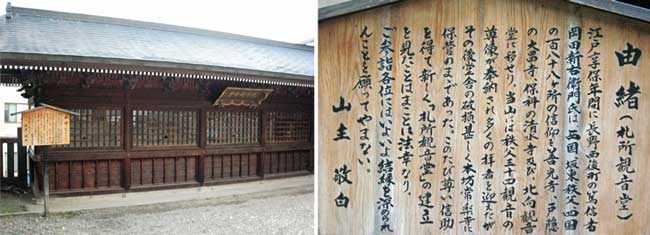 由緒(札所観音堂)
江戸享保年間に長野西後町の篤信者
岡田新右衛門氏は西国、坂東、秩父、四国
の百八十八ヶ所の信仰を善光寺、戸隠
の大昌寺、保科の清水寺及び北向観音
堂に移せり。当山には秩父三十四観音の
尊像が奉納され多くの拝者を迎えたが
その後堂舎の破損甚しく本坊常楽寺に
保管のままであった。このたび尊い信助
を得て新しく、札所観音堂の建立
を見たことはまことに法幸なり。
ご参詣各位にはいよいよ結縁を深められ
んことを願ってやまない。
山主 敬白